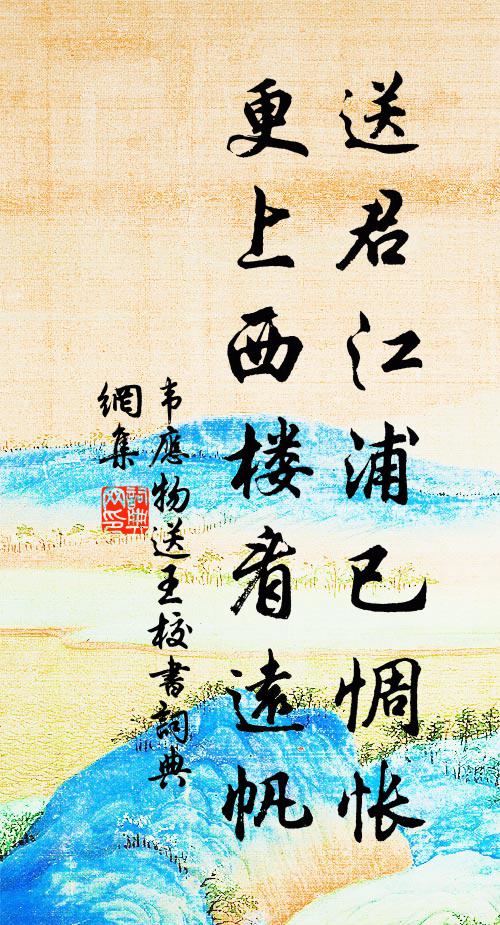 送君江浦已惆怅
更上西楼看遠帆
韦應物送王校書詞典
網集
詞典
网印